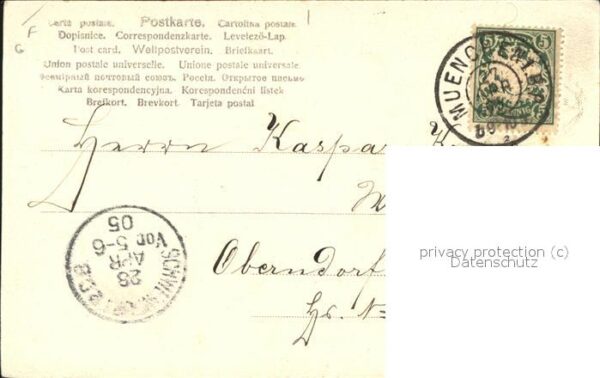 Carte postale. Postkarte. Cartolina postale.
Dopisnice. Correspondenzkarte. Levelező-Lap.
Post card. Weltpostverein. Briefkaart.
Union postale universelle. Unione postale universale.
Всемірный почтовый союзъ. Россія. Открытое письмо
Karta korespondencyjna. Korespondenční lístek
Brefkort. Brevkort. Tarjeta postal
F
G
5 5
MUENCH
Herrn Kaspa
Oberndorf
Hs. N
28
APR
Vor 5-6
05
SCHW
privacy protection (c)
Datenschutz